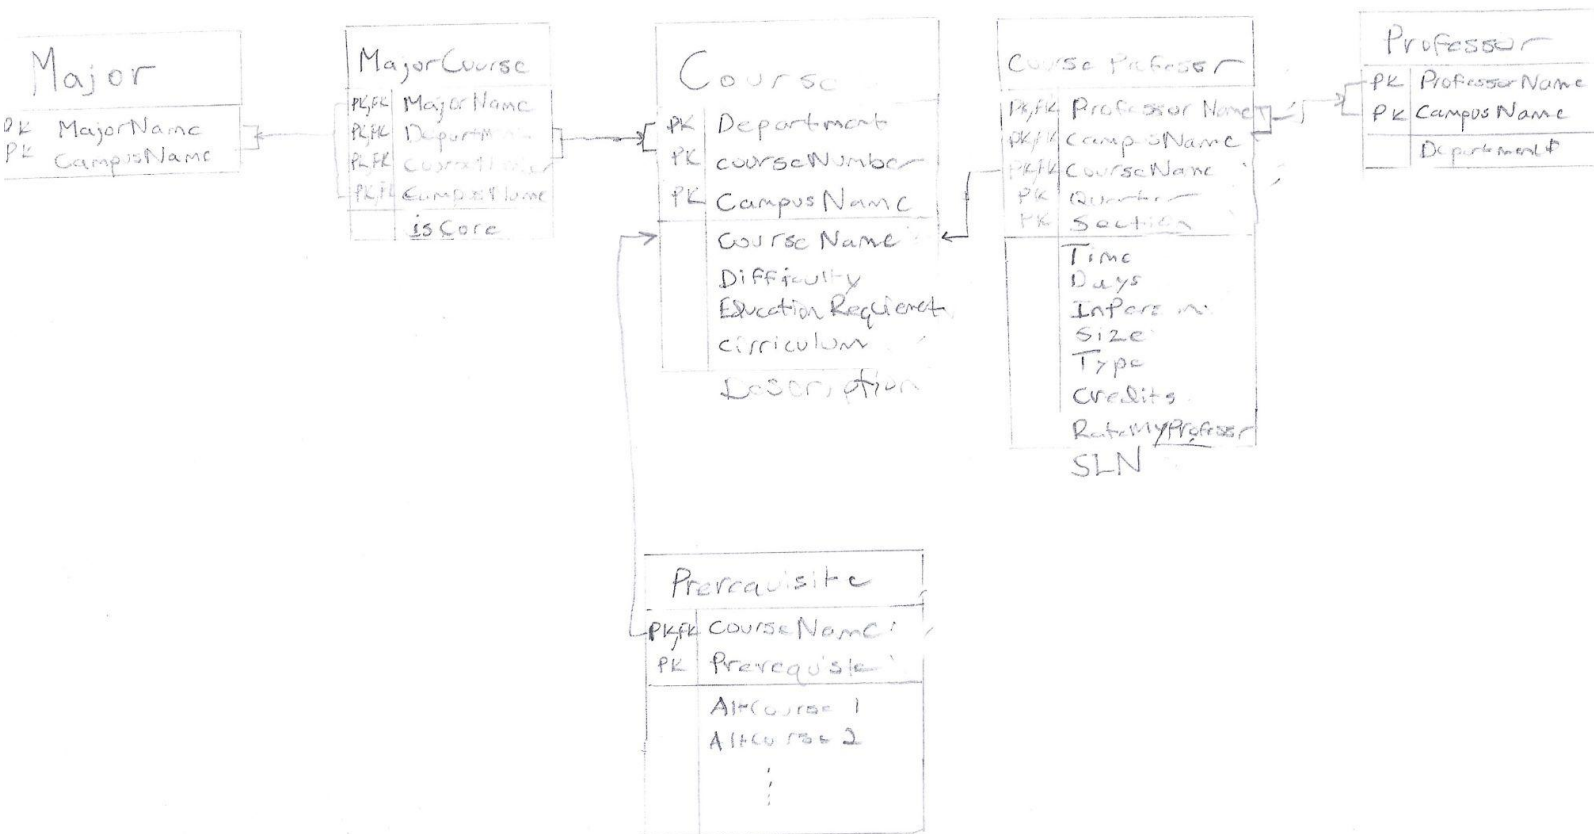 Major
PK MajorName
PK CampusName
MajorCourse
PK,FK MajorName
PK,FK Department
PK,FK CourseNumber
PK,FK CampusName
isCore
Course
PK Department
PK courseNumber
PK CampusName
Course Name
Difficulty
Education Requiement
cirriculum
Description
Course Professor
PK,FK Professor Name
PK,FK CampusName
PK,FK CourseName
PK Quarter
PK Section
Time
Days
InPerson
Size
Type
Credits
RateMyProfessor
SLN
Professor
PK ProfessorName
PK CampusName
Department
Prerequisite
PK,FK CourseName
PK
AltCourse 1
AltCourse 2